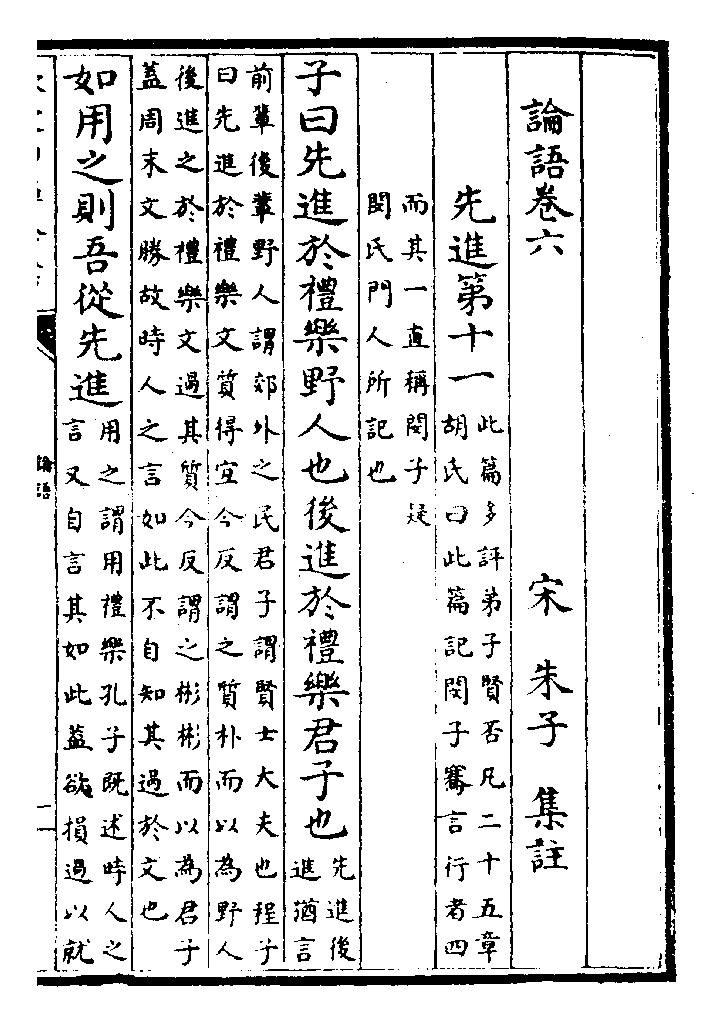 論語卷六 宋 朱子 集註
先進第十一 此篇多評弟子賢否凡二十五章
胡氏曰此篇記閔子騫言行者四
而其一直稱閔子疑
閔氏門人所記也
子曰先進於禮樂野人也後進於禮樂君子也 先進後
進猶言
前輩後輩野人謂郊外之民君子謂賢士大夫也程子
曰先進於禮樂文質得宜今反謂之質朴而以為野人
後進之於禮樂文過其質今反謂之彬彬而以為君子
蓋周末文勝故時人之言如此不自知其過於文也
如用之則吾從先進 用之謂用禮樂孔子既述時人之
言又自言其如此蓋欲損過以就
論語